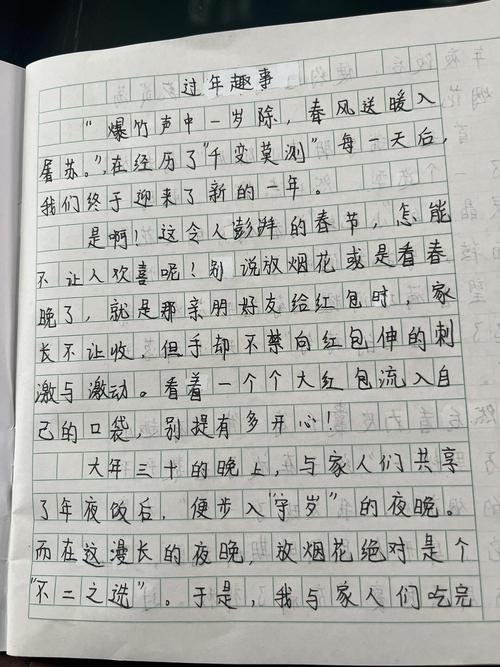 过年趣事
“爆竹声中一岁除，春风送暖入
屠苏。”，在经历了“千变莫测”每一天后，
我们终于迎来了新的一年。
是啊！这令人澎湃的春节，怎能
不让人欢喜呢！别说放烟花或是看春
晚了，就是那亲朋好友给红包时，家
长不让收，但手却不禁向红包伸的刺
激与激动。看着一个个大红包流入自
己的口袋，别提有多开心！
大年三十的晚上，与家人们共享
了年夜饭后，便步入“守岁”的夜晚。
而在这漫长的夜晚，放烟花绝对是个
“不二之选”。于是，我与家人们吃完